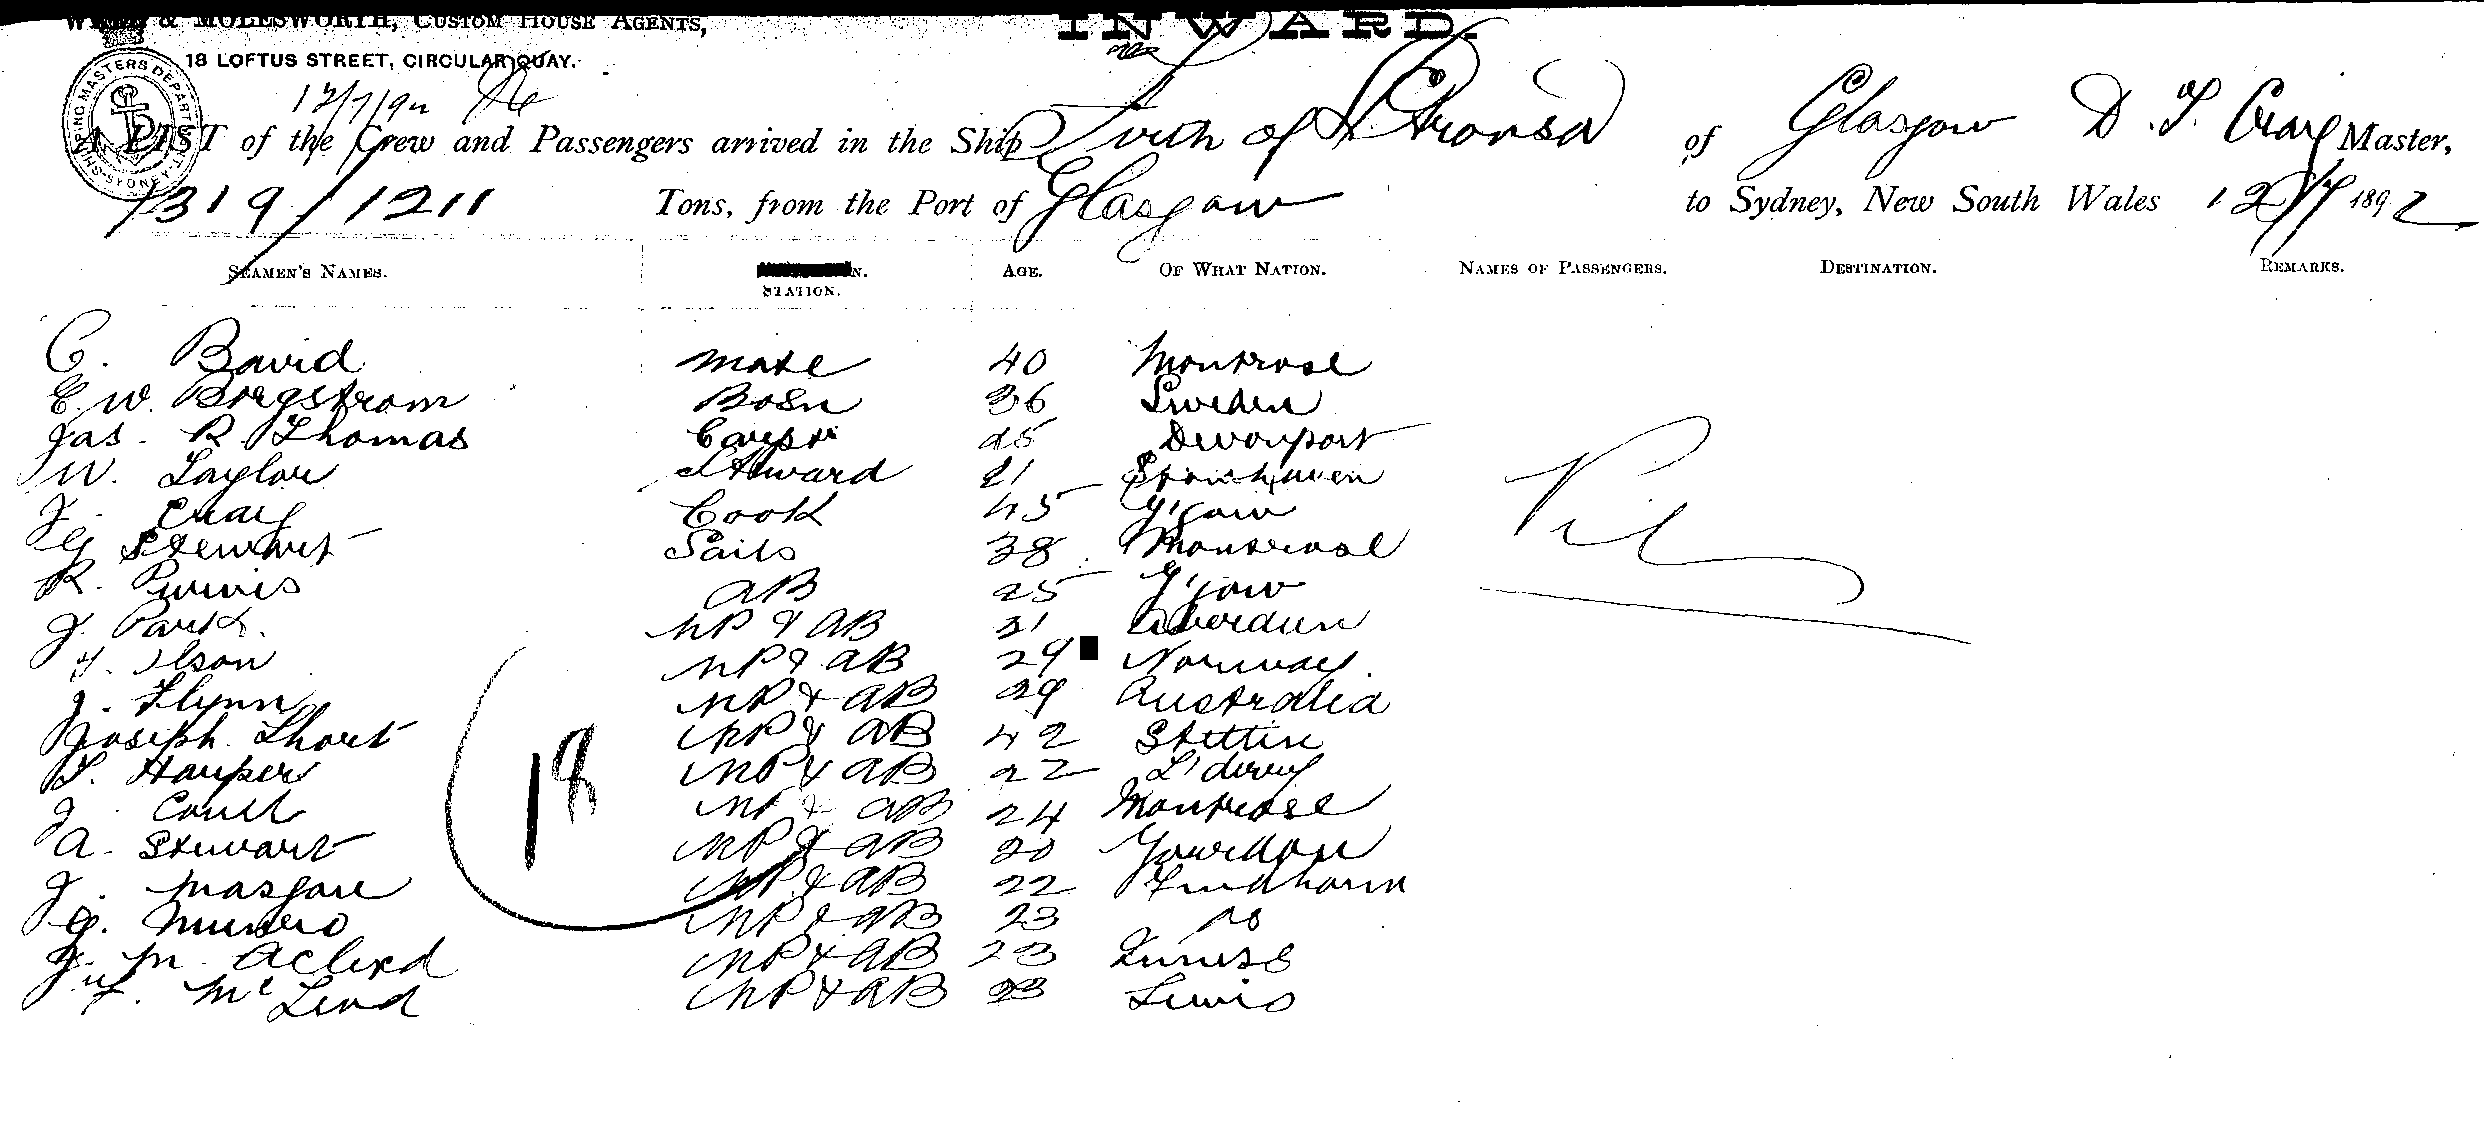 & MOLESWORTH, CUSTOM HOUSE AGENTS,
INWARD.
18 LOFTUS STREET, CIRCULAR QUAY.
12/7/92
A LIST of the Crew and Passengers arrived in the Ship Firth of Stronsa of Glasgow D. T. Craig Master,
1319/1211 Tons, from the Port of Glasgow to Sydney, New South Wales 12/7 1892
SEAMEN'S NAMES. STATION. AGE. OF WHAT NATION. NAMES OF PASSENGERS. DESTINATION. REMARKS.
C. David Mate 40 Montrose
E. W. Borgstrom Bosn 36 Sweden
Jas. R Thomas Carptr 25 Devonport
W. Taylor Steward 21 Stonehaven
J. Craig Cook 45 G'gow
G Stewart Sails 38 Montrose
R. Purvis AB 25 G'gow
J. Park MP & AB 31 Aberdeen
Olson MP & AB 29 Norway
J. Flynn MP & AB 29 Australia
Joseph Short MP & AB 42 Stettin
T. Harper MP & AB 22 L'derry
J. Coull MP & AB 24 Montrose
A. Stewart MP & AB 20 Gourdon
J. MP & AB 22 Findhorn
G. Munro MP & AB 23 Do
J. M. MP & AB 23
Mc Leod MP & AB 23 Lewis
18